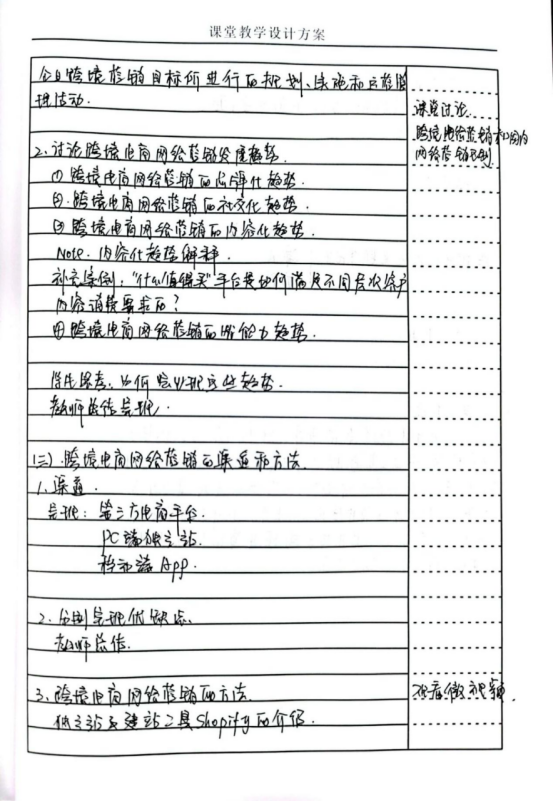 课堂教学设计方案
企业跨境营销目标所进行的规划、实施和运营管
理活动.
课堂讨论.
跨境电商营销和国内
网络营销区别.
2.讨论跨境电商网络营销发展趋势.
① 跨境电商网络营销的品牌化趋势.
② 跨境电商网络营销的社交化趋势.
③ 跨境电商网络营销的内容化趋势.
Note. 内容化趋势解释.
补充案例:“什么值得买”平台是如何满足不同层次客户
内容消费需求的?
④ 跨境电商网络营销的智能力趋势.
学生思考,为何会出现这些趋势.
教师总结呈现.
(三).跨境电商网络营销的渠道和方法.
1.渠道.
呈现: 第三方电商平台.
PC端独立站.
移动端App.
2.分别呈现优缺点.
教师总结.
3.跨境电商网络营销的方法.
独立站及建站工具Shopify的介绍.
观看微视频.